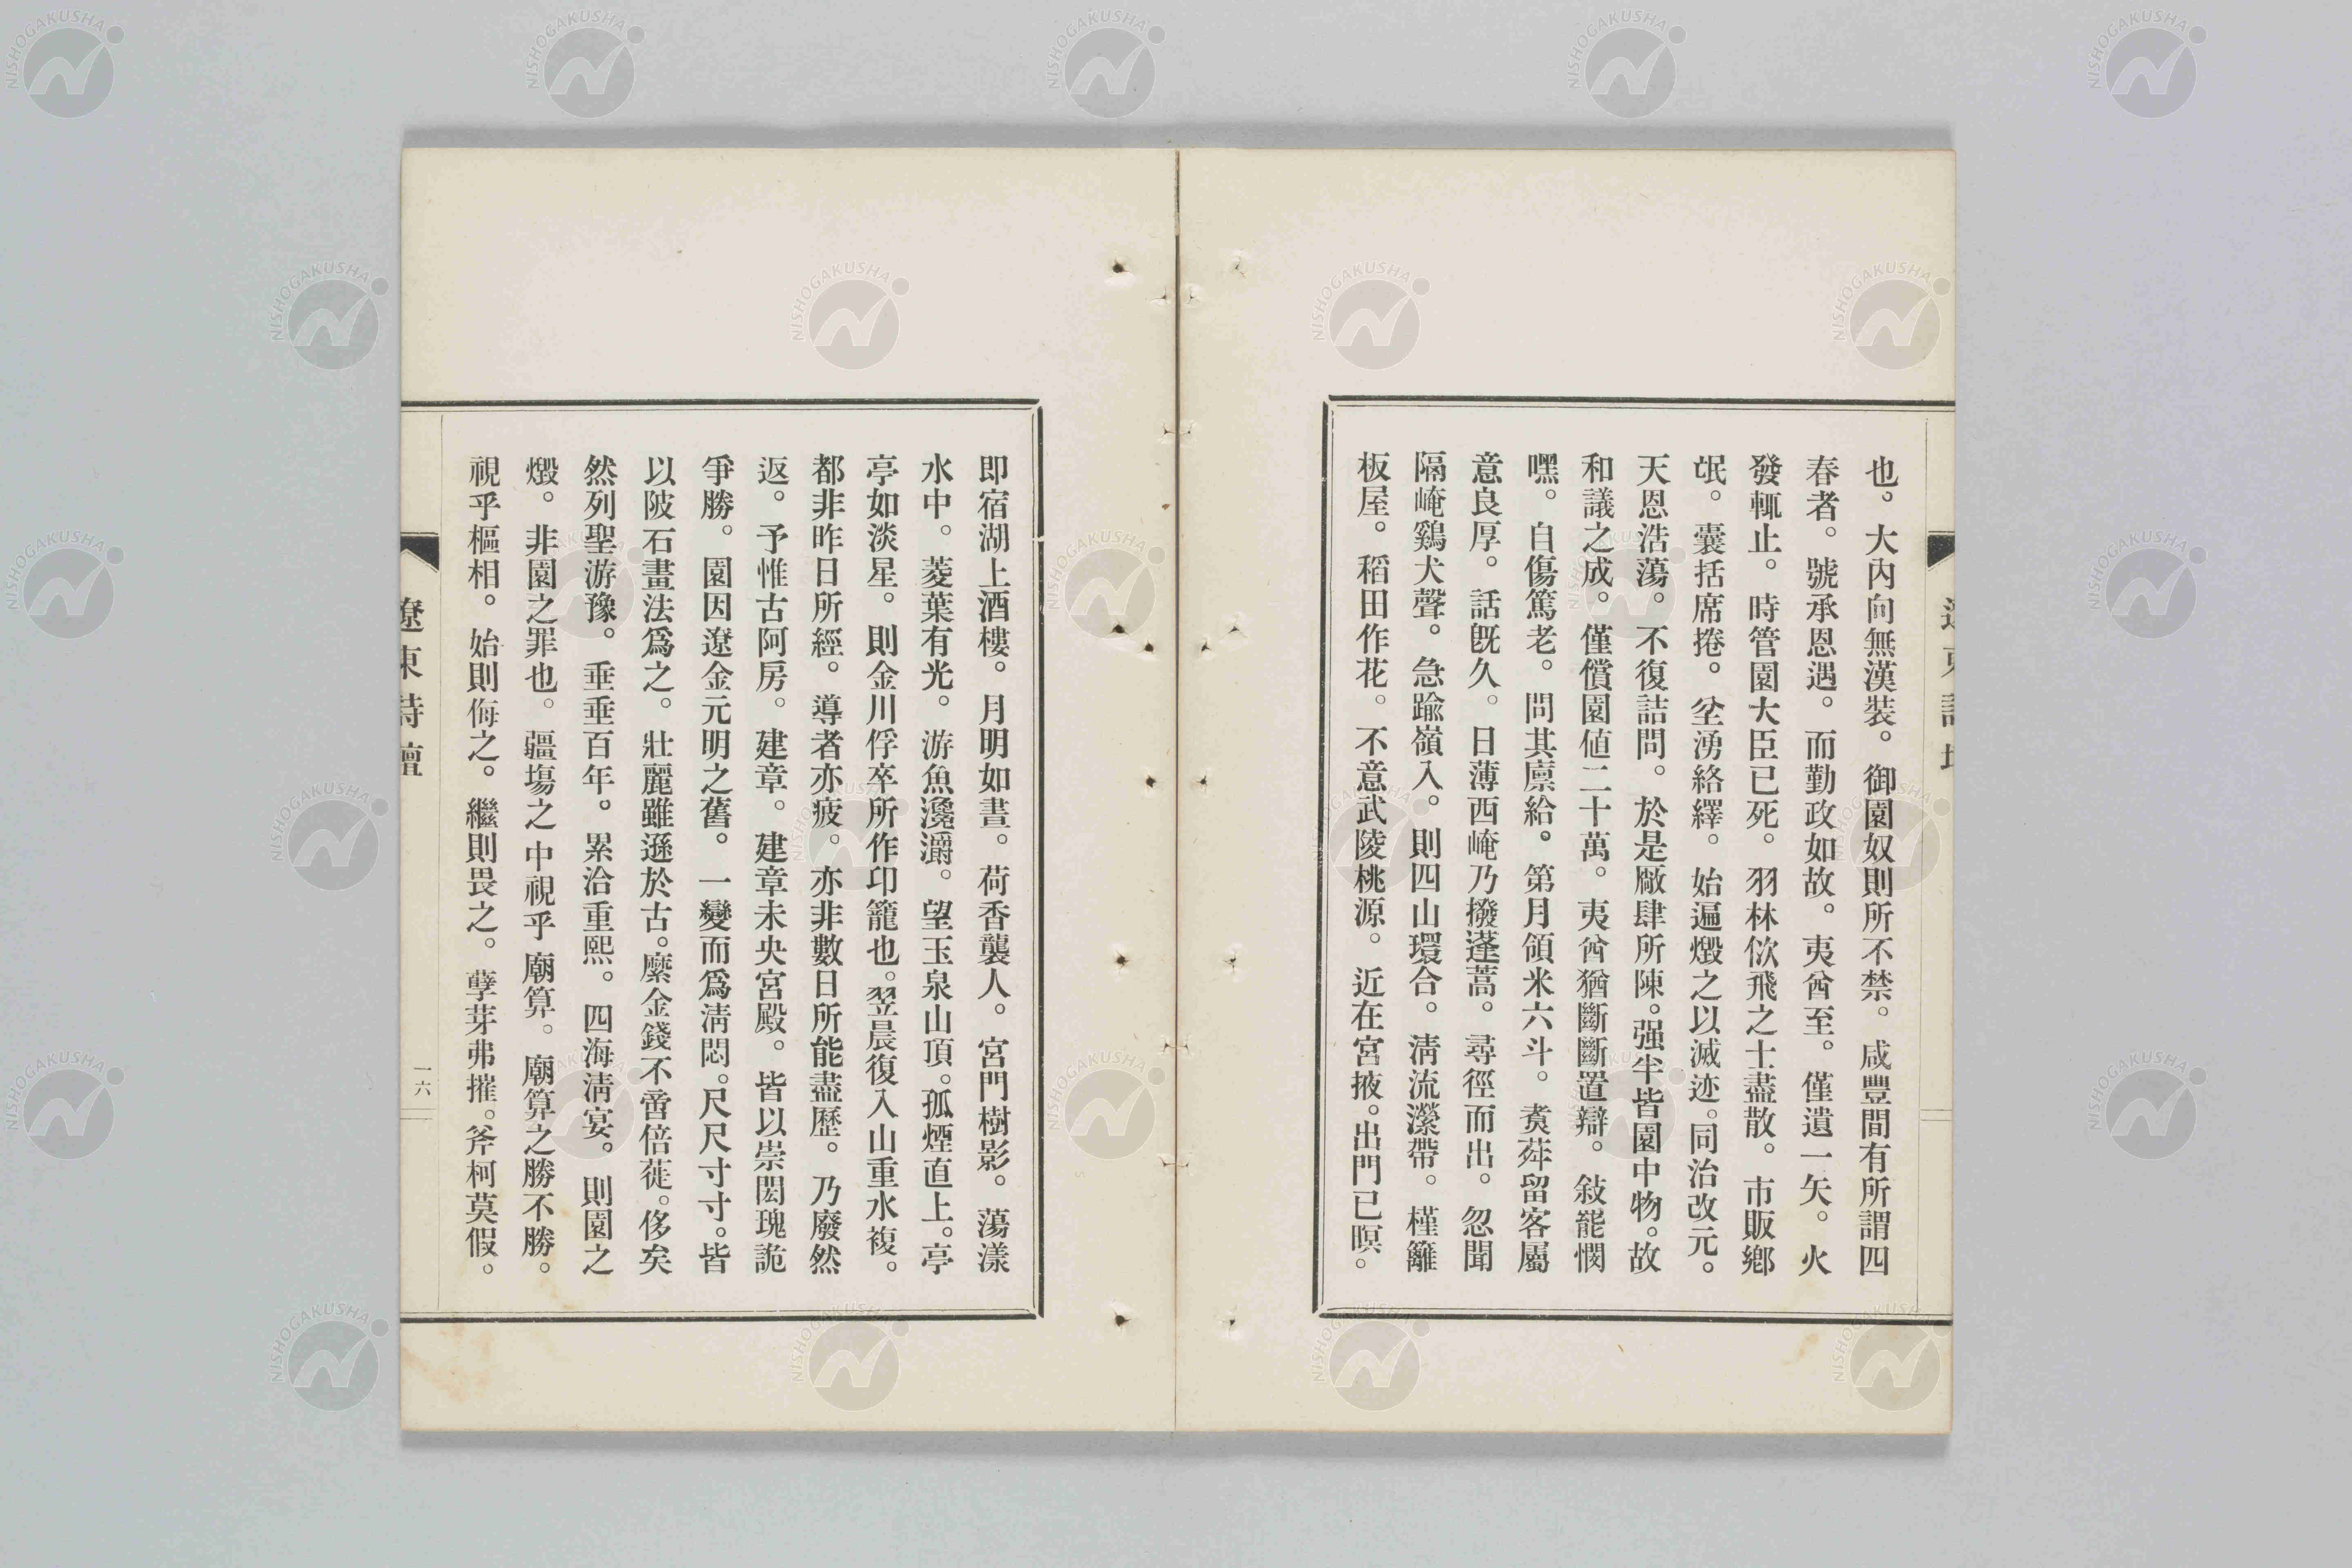 也。大內向無漢裝。御園奴則所不禁。咸豐間有所謂四
春者。號承恩遇。而勤政如故。夷酋至。僅遺一矢。火
發輒止。時管園大臣已死。羽林佽飛之士盡散。市販鄉
氓。囊括席捲。坌湧絡繹。始遍燬之以滅迹。同治改元。
天恩浩蕩。不復詰問。於是廠肆所陳。强半皆園中物。故
和議之成。僅償園値二十萬。夷酋猶斷斷置辯。敍能憫
嘿。自傷篤老。問其廩給。第月領米六斗。煑茻留客屬
意良厚。話旣久。日薄西崦乃撥蓬蒿。尋徑而出。忽聞
隔崦鷄犬聲。急踰嶺入。則四山環合。淸流瀠帶。槿籬
板屋。稻田作花。不意武陵桃源。近在宮掖。出門已暝。
卽宿湖上酒樓。月明如晝。荷香襲人。宮門樹影。蕩漾
水中。菱葉有光。游魚瀺灂。望玉泉山頂。孤煙直上。亭
亭如淡星。則金川俘卒所作印籠也。翌晨復入山重水複。
都非昨日所經。導者亦疲。亦非數日所能盡歷。乃廢然
返。予惟古阿房。建章。建章未央宮殿。皆以崇閎瑰詭
爭勝。園因遼金元明之舊。一變而爲淸悶。尺尺寸寸。皆
以陂石畫法爲之。壯麗雖遜於古。縻金錢不啻倍蓰。侈矣
然列聖游豫。垂垂百年。累洽重熙。四海淸宴。則園之
燬。非園之罪也。疆場之中視乎 廟算。廟算之勝不勝。
視乎樞相。始則侮之。繼則畏之。孽芽弗摧。斧柯莫假。
遼東詩壇
一六
NISHOGAKUSHA